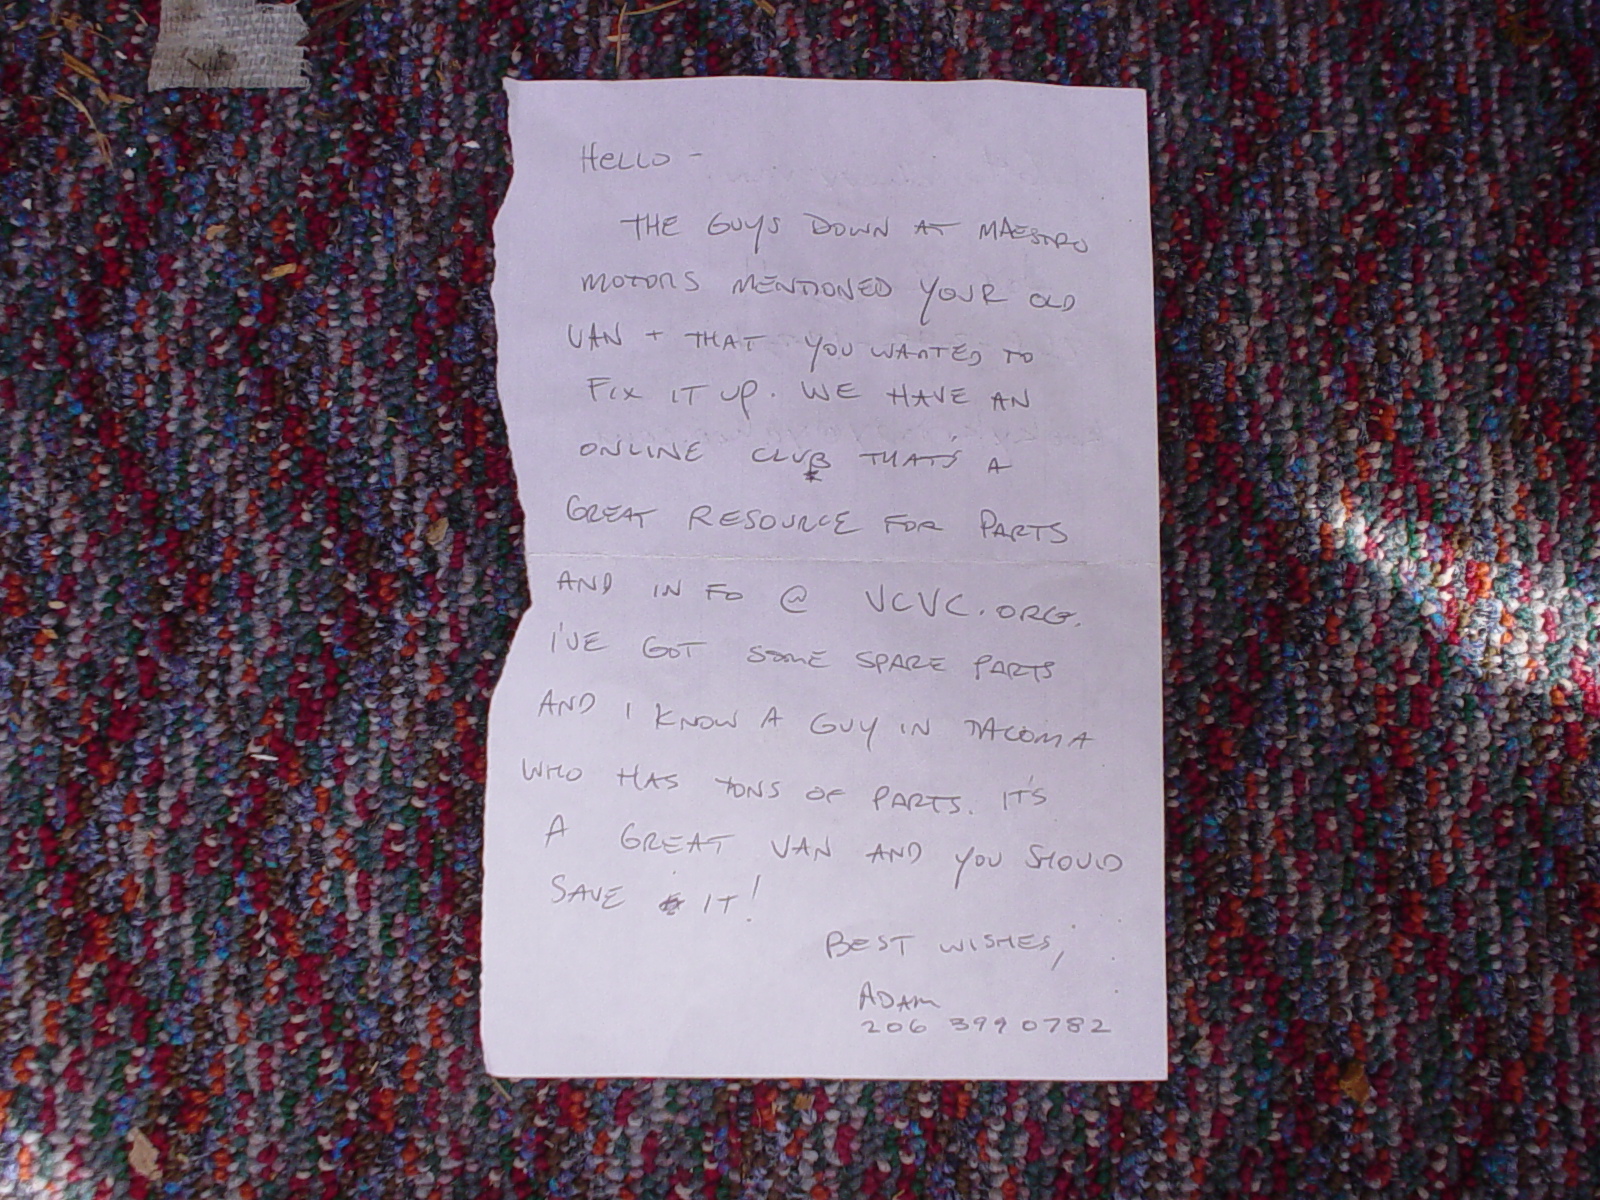 HELLO -
THE GUYS DOWN AT MAESTRO
MOTORS MENTIONED YOUR OLD
VAN + THAT YOU WANTED TO
FIX IT UP. WE HAVE AN
ONLINE CLUB THAT'S A
GREAT RESOURCE FOR PARTS
AND INFO @ VCVC.ORG.
I'VE GOT SOME SPARE PARTS
AND I KNOW A GUY IN TACOMA
WHO HAS TONS OF PARTS. IT'S
A GREAT VAN AND YOU SHOULD
SAVE IT!
BEST WISHES,
ADAM
206 399 0782